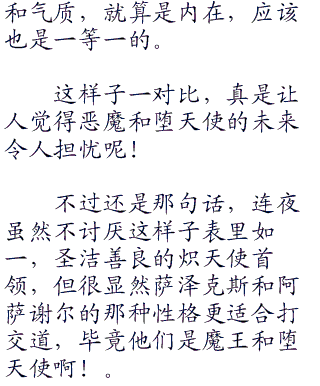 和气质，就算是内在，应该
也是一等一的。
这样子一对比，真是让
人觉得恶魔和堕天使的未来
令人担忧呢！
不过还是那句话，连夜
虽然不讨厌这样子表里如
一，圣洁善良的炽天使首
领，但很显然萨泽克斯和阿
萨谢尔的那种性格更适合打
交道，毕竟他们是魔王和堕
天使啊！。